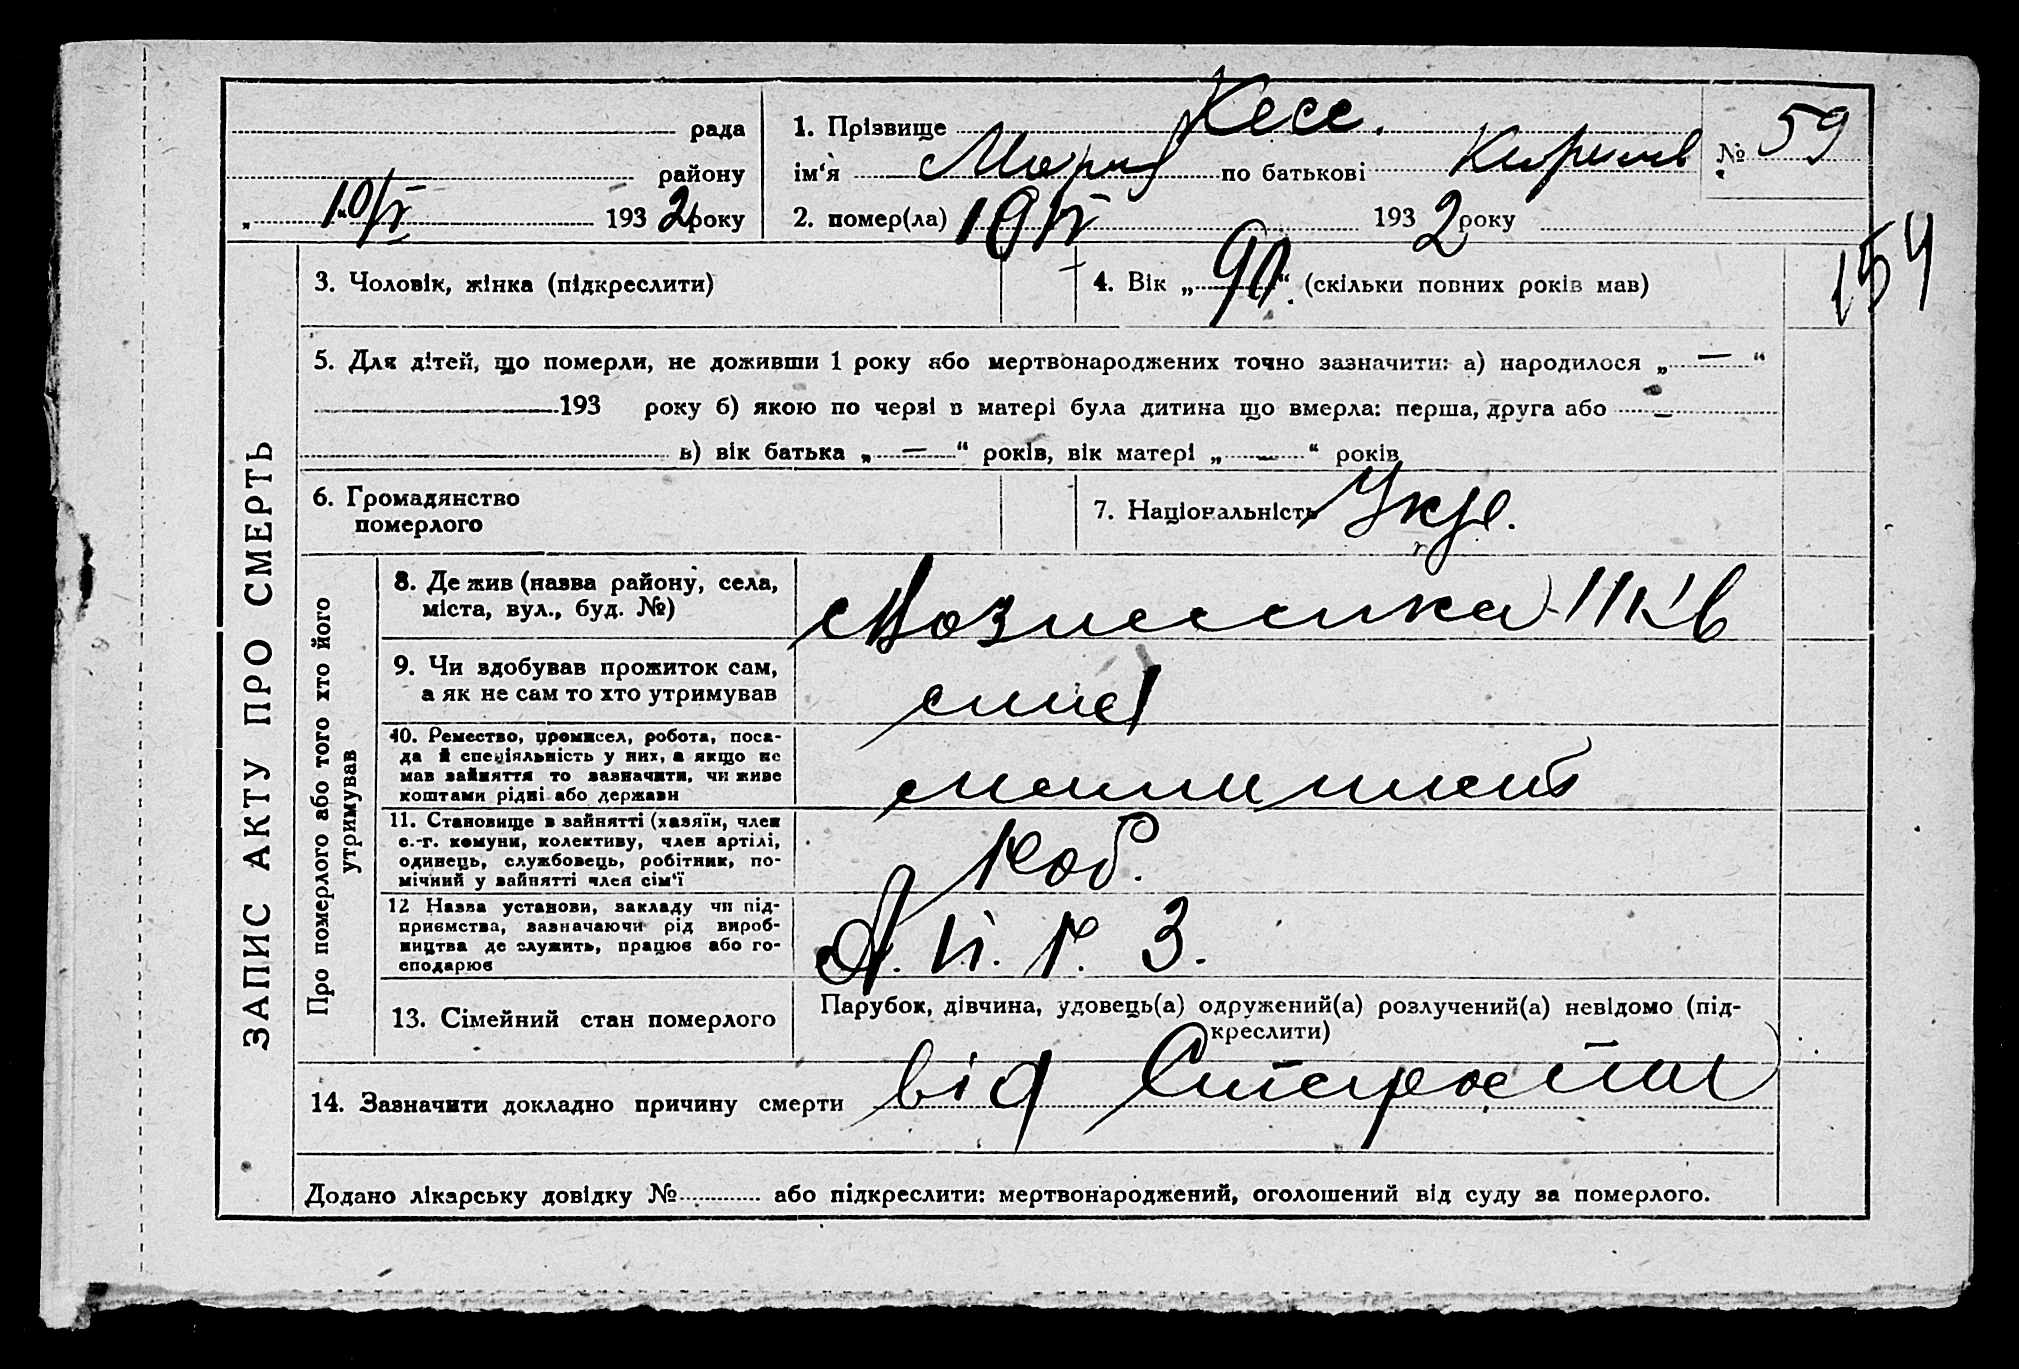 рада
району
„ 10/V 1932 року
1. Прізвище Кесс.
ім‘я Мария по батькові
№ 59
2. помер(ла) 10/V 1932 року
154
3. Чоловік, жінка (підкреслити)
4. Вік „90.“ (скільки повних років мав)
5. Для дітей, що померли, не доживши 1 року або мертвонароджених точно зазначити: а) народилося „—“
193 року б) якою по черзі в матері була дитина що вмерла: перша, друга або —
в) вік батька „—“ років, вік матері „—“ років
6. Громадянство
померлого
7. Національність Укр.
ЗАПИС АКТУ ПРО СМЕРТЬ
Про померлого або того хто його
утримував
8. Де жив (назва району, села,
міста, вул., буд. №)
9. Чи здобував прожиток сам,
а як не сам то хто утримував
10. Ремество, промисел, робота, поса-
да й спеціяльність у них, а якщо не
мав зайняття то зазначити, чи живе
коштами рідні або держави
машинист
11. Становище в зайнятті (хазяїн, член
с.-г. комуни, колективу, член артілі,
одинець, службовець, робітник, по-
мічний у зайнятті член сім‘ї
Роб.
12 Назва установи, закладу чи під-
приємства, зазначаючи рід вироб-
ництва де служить, працює або го-
сподарює
13. Сімейний стан померлого
Парубок, дівчина, удовець(а) одружений(а) розлучений(а) невідомо (під-
креслити)
14. Зазначити докладно причину смерти від Старости
Додано лікарську довідку № або підкреслити: мертвонароджений, оголошений від суду за померлого.